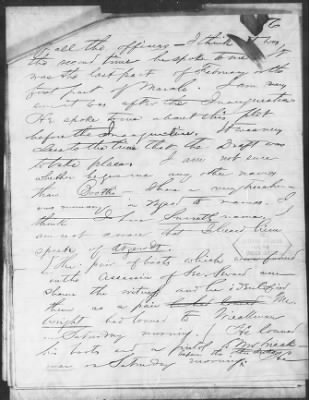 6
to all the officers — I think it was
the second time he spoke to me. It
was the last part of February or the
first part of March. I am very
sure it was after the Inauguration
He spoke to me about this plot
before the Inauguration. It was very
close to the time that the Draft was
to take place. I am not sure
whether he gave me any other names
than Booth. There is a
in regard to names. I
think I have Surratt name. I
am not aware that I heard him
speak of Atzerodt.
[The pair of boots which was found
on the Assassin of Sec. Seward are
shown the witness and he identified
them as a pair Mr.
Wright had loaned to
on Saturday morning.] He loaned
his boots and a pistol to
on Saturday morning. He